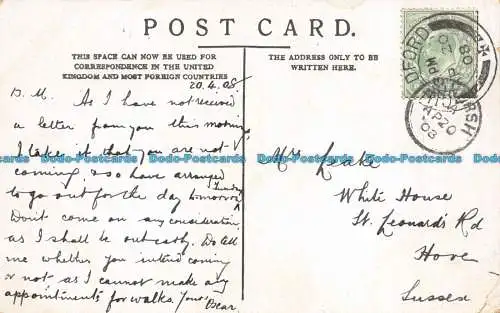 POST CARD.
THIS SPACE CAN NOW BE USED FOR
CORRESPONDENCE IN THE UNITED
KINGDOM AND MOST FOREIGN COUNTRIES
THE ADDRESS ONLY TO BE
WRITTEN HERE.
20.4.08
B. M. As I have not received
a letter from you this morning
I take it that you are not
coming & so have arranged
to go out for the day tomorrow Sunday
Don't come on any consideration
as I shall be out early. Do tell
me whether you intend coming
or not as I cannot make any
appointments for walks. Your Bear
Mrs Leake
White House
St. Leonards Rd
Hove
Sussex
AP 20
08
Dodo-Postcards Dodo-Postcards Dodo-Postcards Dodo-Postcards